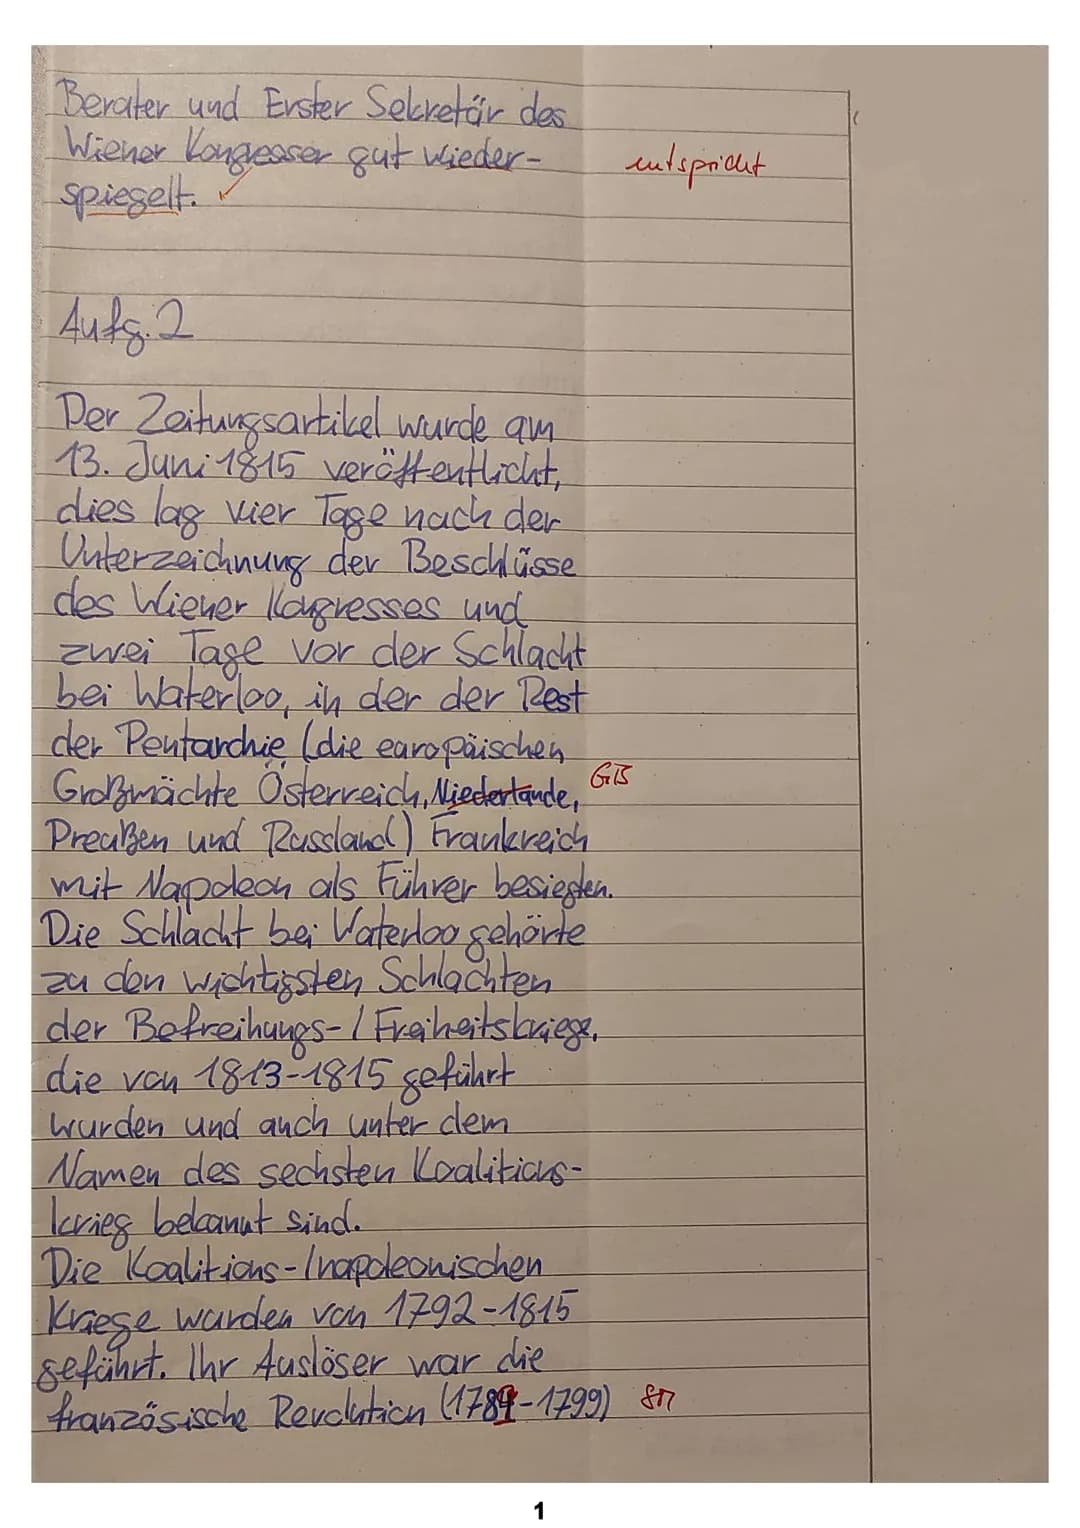 Berater und Erster Sekretär des
Wiener Kongresser gut wieder- entspricht
spiegelt. ✓
Aufg. 2
Der Zeitungsartikel wurde am
13. Juni 1815 veröffentlicht,
dies lag vier Tage nach der
Unterzeichnung der Beschlüsse
des Wiener Kongresses und
zwei Tage vor der Schlacht
bei Waterloo, in der der Rest
der Pentarchie (die europäischen
Großmächte Österreich, Niederlande, GB
Preußen und Russland) Frankreich
mit Napoleon als Führer besiegten.
Die Schlacht bei Waterloo gehörte
zu den wichtigsten Schlachten
der Befreihungs-/Freiheitskriege,
die von 1813-1815 geführt
wurden und auch unter dem
Namen des sechsten Koalitions-
krieg bekannt sind.
Die Koalitions-/napoleonischen
Kriege wurden von 1792-1815
geführt. Ihr Auslöser war die
französische Revolution (1789-1799)
1